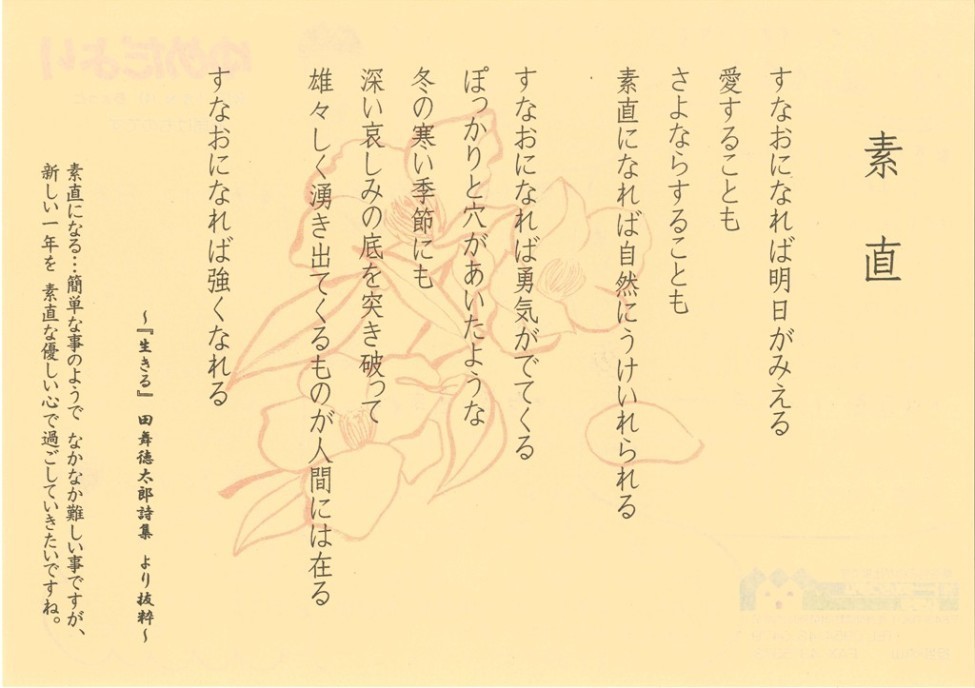 素直
すなおになれば明日がみえる
愛することも
さよならすることも
素直になれば自然にうけいれられる
すなおになれば勇気がでてくる
ぽっかりと穴があいたような
冬の寒い季節にも
深い哀しみの底を突き破って
雄々しく湧き出てくるものが人間には在る
すなおになれば強くなれる
～『生きる』 田舞徳太郎詩集 より抜粋～
素直になる…簡単な事のようで なかなか難しい事ですが、
新しい一年を 素直な優しい心で過ごしていきたいですね。
ゆめだより